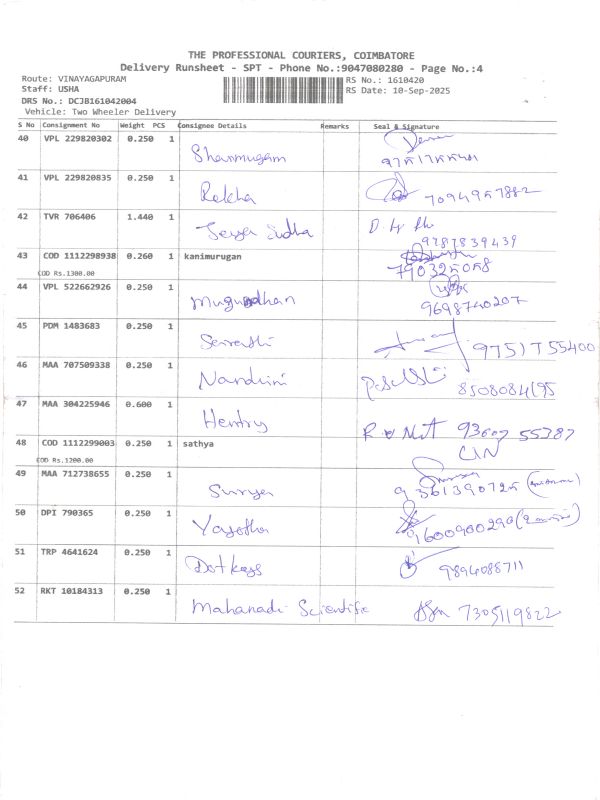 THE PROFESSIONAL COURIERS, COIMBATORE
Delivery Runsheet - SPT - Phone No.:9047080280 - Page No.:4
Route: VINAYAGAPURAM RS No.: 1610420
Staff: USHA RS Date: 10-Sep-2025
DRS No.: DCJB161042004
Vehicle: Two Wheeler Delivery
S No Consignment No Weight PCS Consignee Details Remarks Seal & Signature
40 VPL 229820302 0.250 1 Shanmugam
41 VPL 229820835 0.250 1 Rekha 7094957882
42 TVR 706406 1.440 1 Jeya Sudha
9787839439
43 COD 1112298938 0.260 1 kanimurugan
COD Rs.1300.00
44 VPL 522662926 0.250 1 Mugundhan
9698740207
45 PDM 1483683 0.250 1
9751755400
46 MAA 707509338 0.250 1 Nandini
8508084195
47 MAA 304225946 0.600 1 Hentry
48 COD 1112299003 0.250 1 sathya
COD Rs.1200.00
49 MAA 712738655 0.250 1 Surya
50 DPI 790365 0.250 1 Yasotha 9600900290
51 TRP 4641624 0.250 1 Dotkeys 9894088711
52 RKT 10184313 0.250 1 Mahanadi Scientific 7305119822